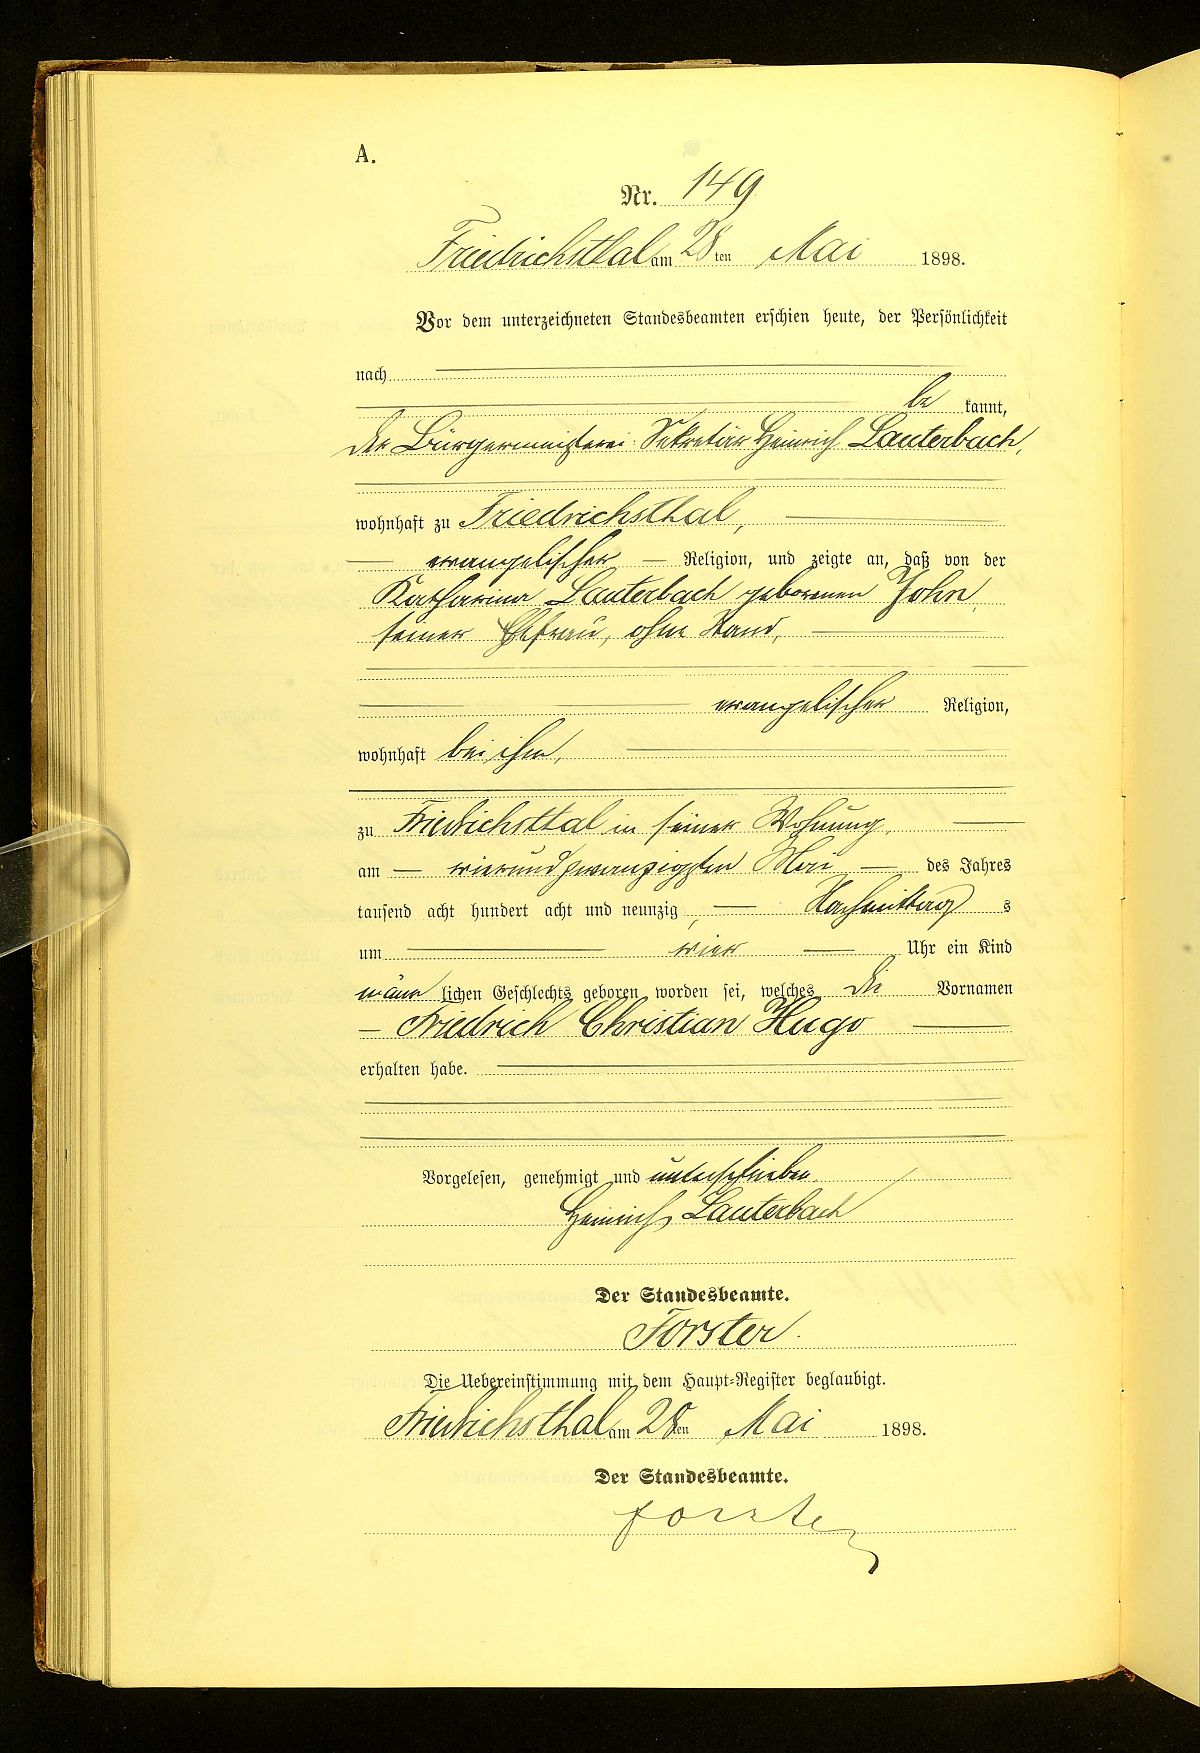 A.
Nr. 149
Friedrichsthal am 28 ten Mai 1898.
Vor dem unterzeichneten Standesbeamten erschien heute, der Persönlichkeit
nach
be kannt,
der Bürgermeisterei Sekretär Heinrich Lauterbach,
wohnhaft zu Friedrichsthal,
evangelischer Religion, und zeigte an, daß von der
Katharina Lauterbach geborenen John,
seiner Ehefrau, ohne Stand,
evangelischer Religion,
wohnhaft bei ihm,
zu Friedrichsthal in seiner Wohnung,
am vierundzwanzigsten Mai des Jahres
tausend acht hundert acht und neunzig, Nachmittag s
um vier Uhr ein Kind
männ lichen Geschlechts geboren worden sei, welches die Vornamen
Friedrich Christian Hugo
erhalten habe.
Vorgelesen, genehmigt und unterschrieben.
Heinrich Lauterbach
Der Standesbeamte.
Forster.
Die Uebereinstimmung mit dem Haupt-Register beglaubigt.
Friedrichsthal am 28 ten Mai 1898.
Der Standesbeamte.
Forster